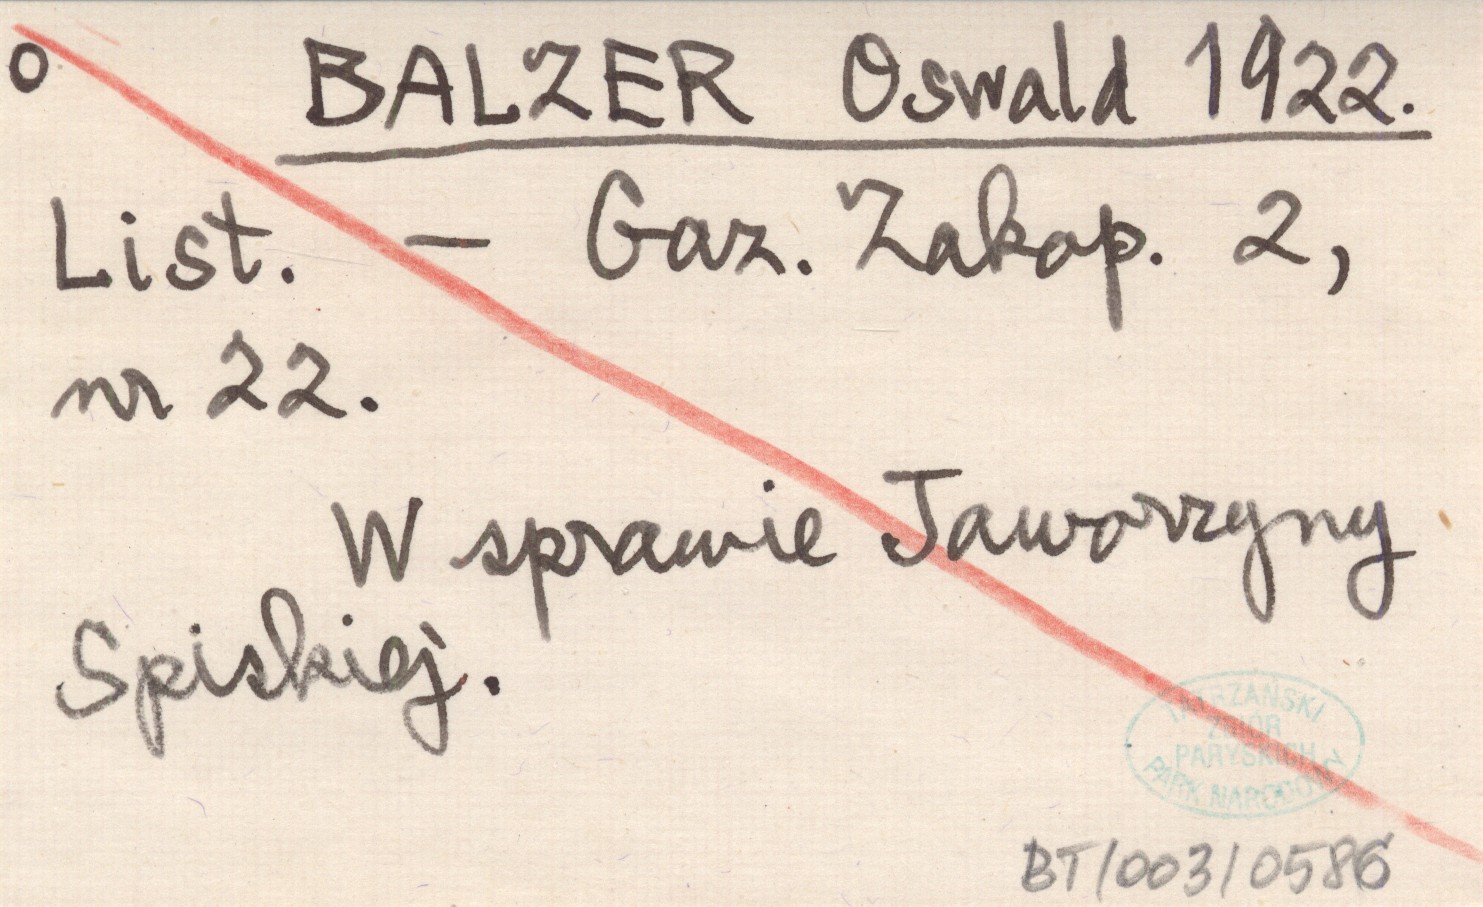 o BALZER Oswald 1922.
List. – Gaz. Zakop. 2,
nr 22.
W sprawie Jaworzyny
Spiskiej.
TATRZAŃSKI
ZBIÓR
PARYSKICH
PARK NARODOWY
BT/003/0586